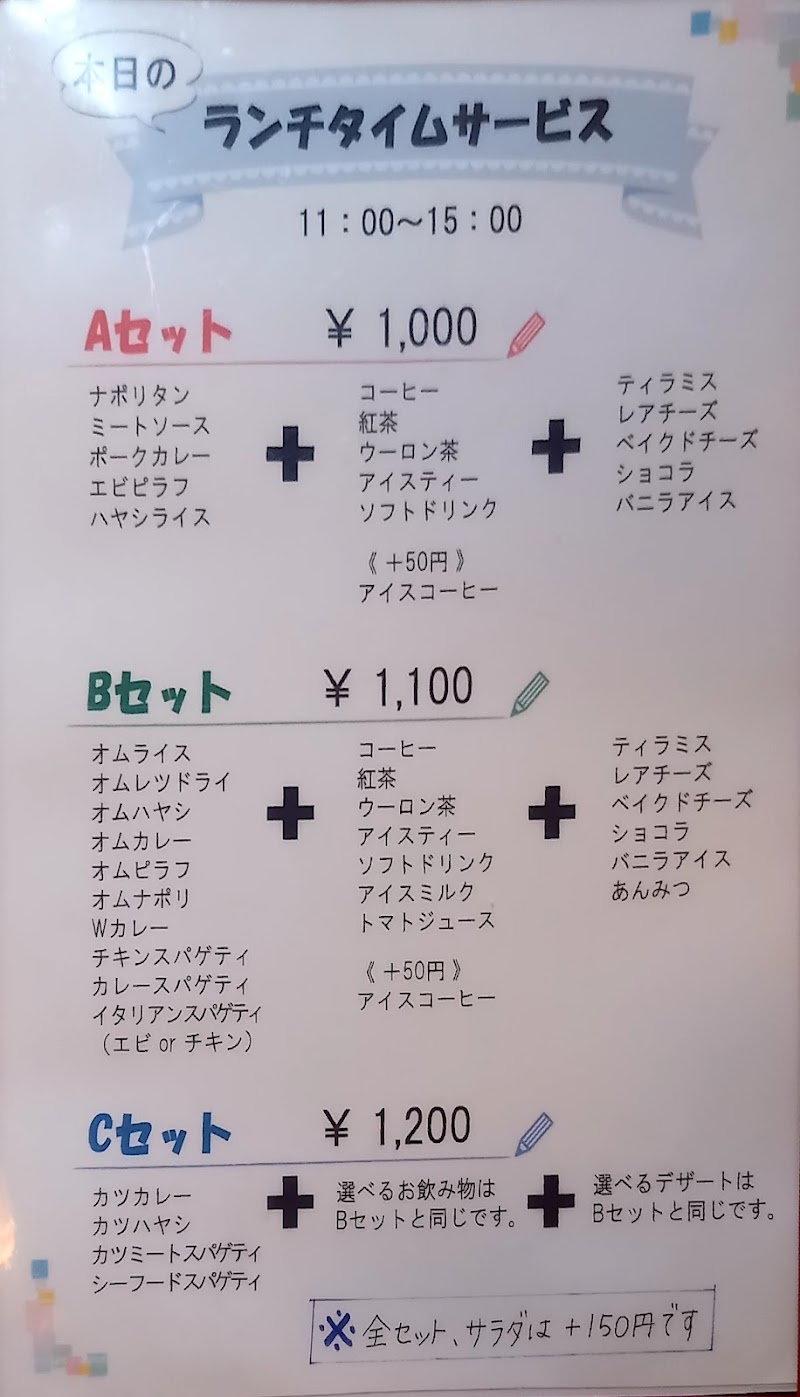 本日の
ランチタイムサービス
11：00～15：00
Aセット ¥ 1,000
ナポリタン
ミートソース
ポークカレー
エビピラフ
ハヤシライス
+
コーヒー
紅茶
ウーロン茶
アイスティー
ソフトドリンク
《 +50円 》
アイスコーヒー
+
ティラミス
レアチーズ
ベイクドチーズ
ショコラ
バニラアイス
Bセット ¥ 1,100
オムライス
オムレツドライ
オムハヤシ
オムカレー
オムピラフ
オムナポリ
Wカレー
チキンスパゲティ
カレースパゲティ
イタリアンスパゲティ
（エビ or チキン）
+
コーヒー
紅茶
ウーロン茶
アイスティー
ソフトドリンク
アイスミルク
トマトジュース
《 +50円 》
アイスコーヒー
+
ティラミス
レアチーズ
ベイクドチーズ
ショコラ
バニラアイス
あんみつ
Cセット ¥ 1,200
カツカレー
カツハヤシ
カツミートスパゲティ
シーフードスパゲティ
+
選べるお飲み物は
Bセットと同じです。
+
選べるデザートは
Bセットと同じです。
※ 全セット、サラダは +150円です